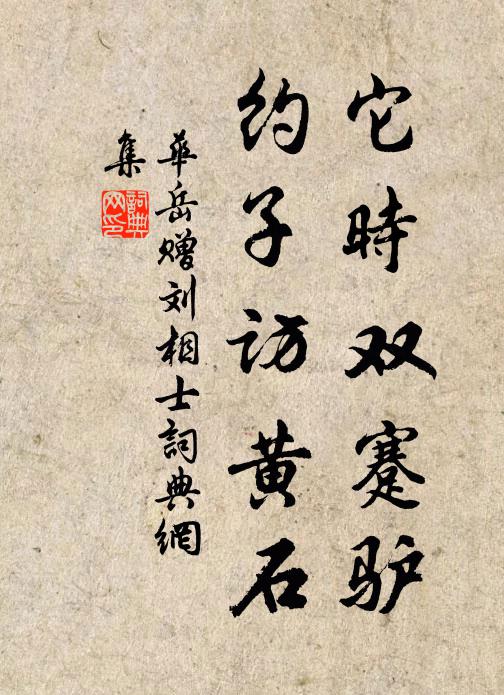 它時双蹇驴
约子访黄石
華岳赠刘相士詞典網
集
詞典网印